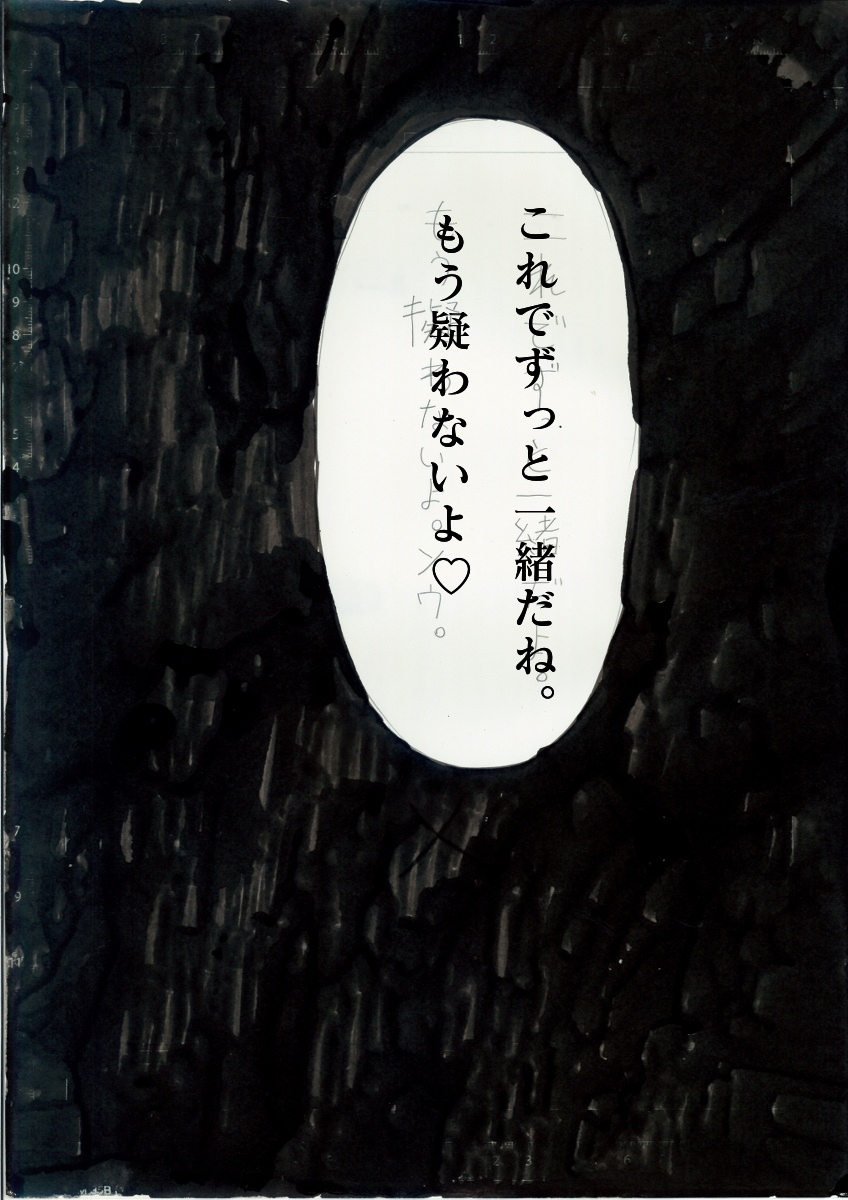 これでずっと一緒だね。
もう疑わないよ♡